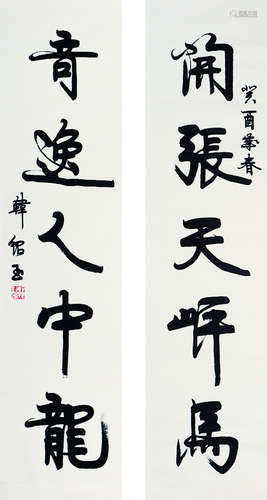 癸酉春
開張天岸馬
奇逸人中龍
韓紹玉